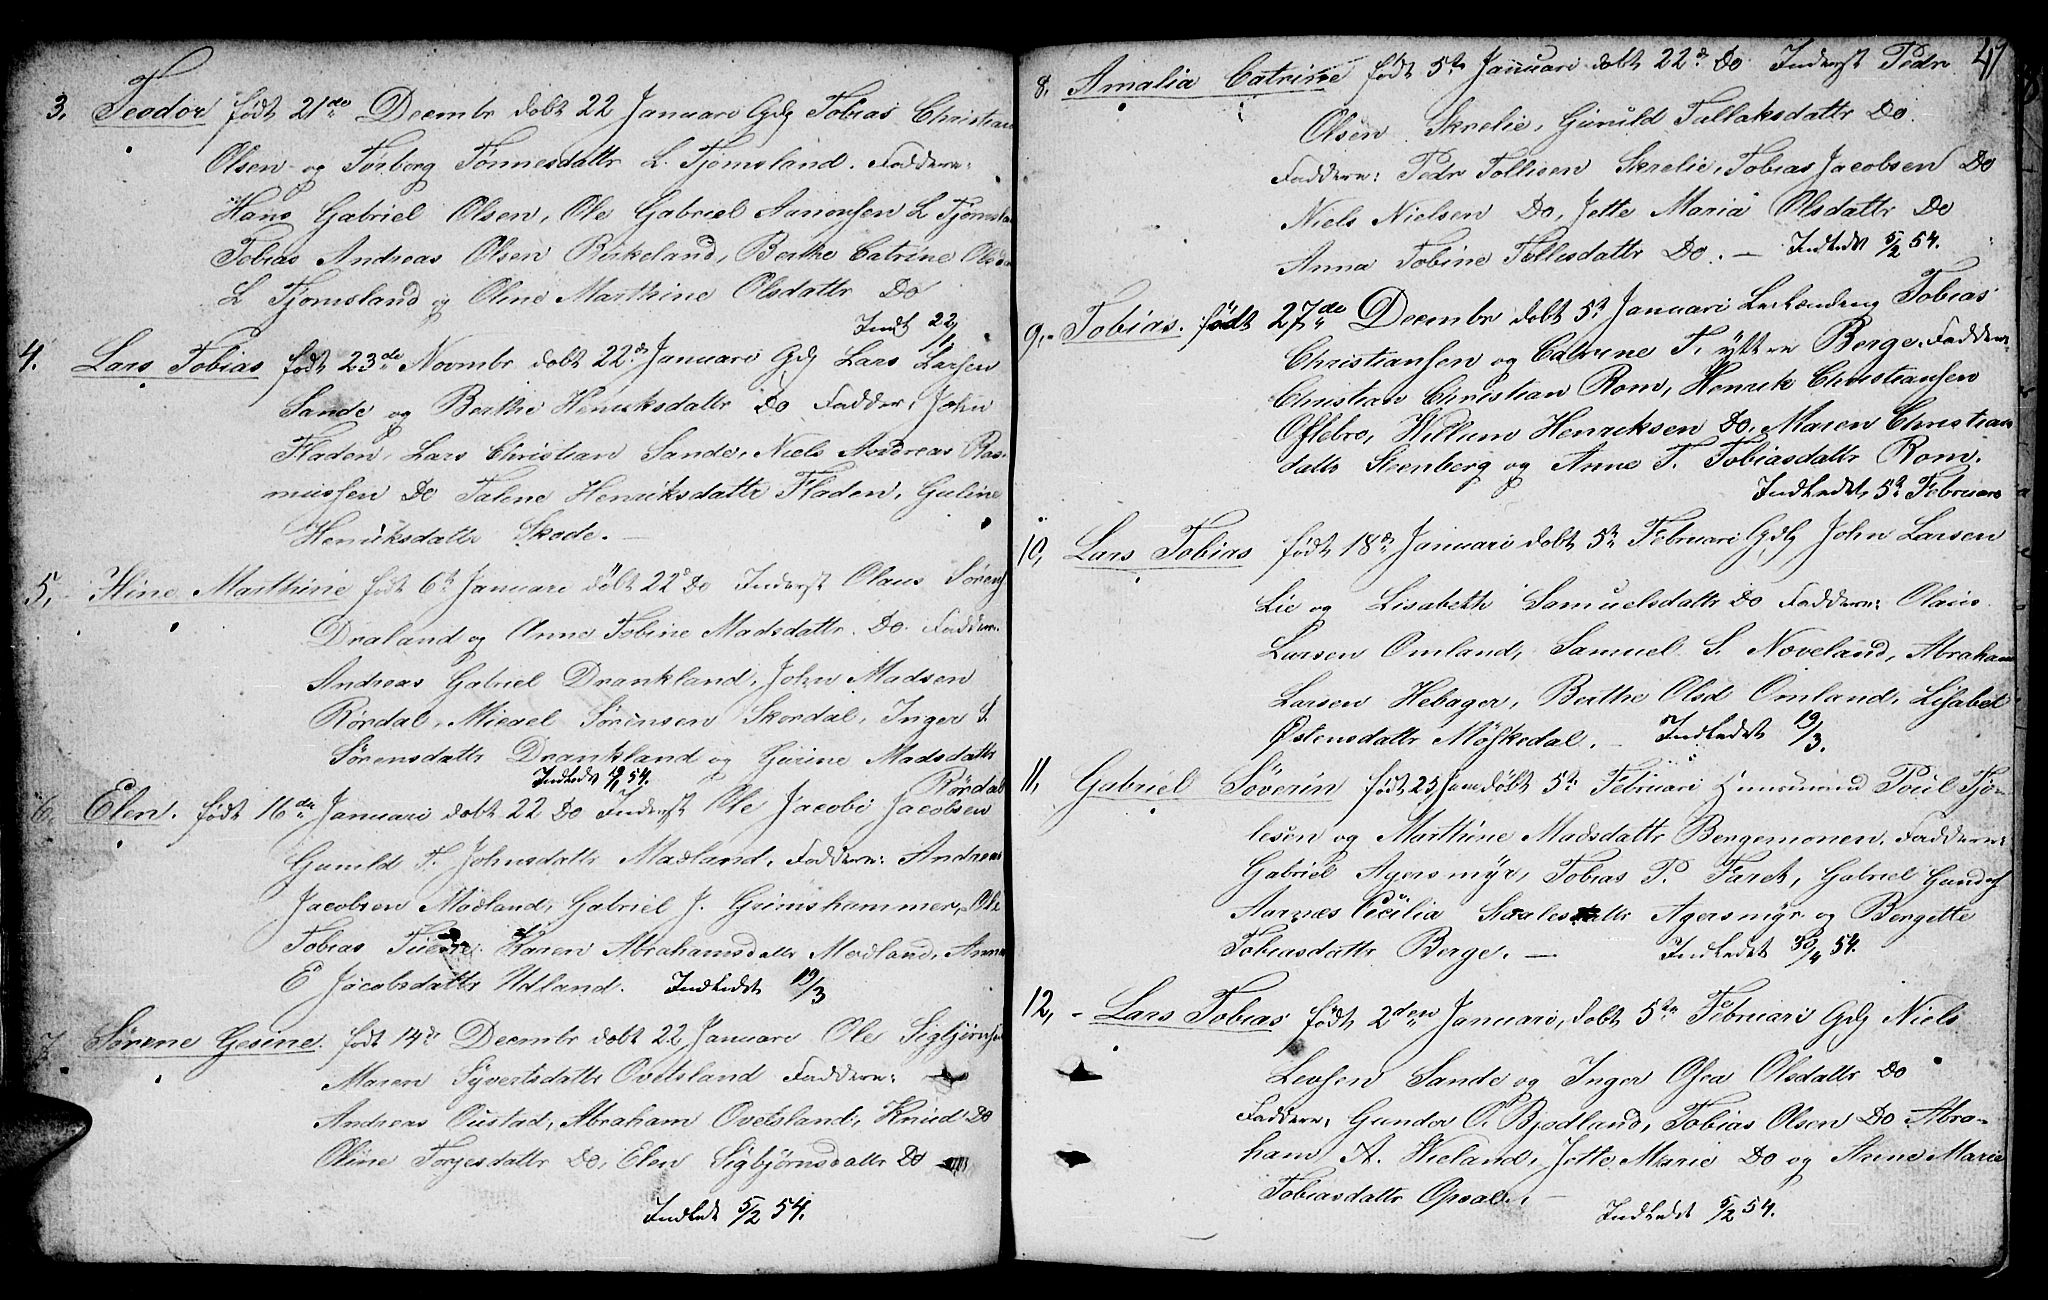 3. Teodor født 21de Decembr dobt 22 Januari Gdg Tobias Christian
Olsen og Torborg Tønnesdattr L. Tjomsland. Faddere:
Hans Gabriel Olsen, Ole Gabriel Aanonsen L Tjomsla
Tobias Andreas Olsen Birkeland, Berthe Catrine Olsda
L Tjomsland og Oline Marthine Olsdattr Do
Indt 22/1
4. Lars Tobias født 23de Novmbr dobt 22d Januari Gdg Lars Larsen
Sande og Berthe Henriksdattr Do Fadder: John
Fladen, Lars Christian Sande, Niels Andreas Ras-
mussen Do Talene Henriksdattr Fladen, Guline
Henriksdattr Skode. —
5, Stine Marthine født 6t Januari döbt 22d Do Inderst Olaus Sørens
Draland og Anne Tobine Madsdattr. Do. Faddere.
Andreas Gabriel Drankland, John Madsen
Rördal, Miedel Sørensen Skordal, Inger S.
Sørensdattr Drankland og Gurine Madsdattr
Rördal
Indledt 19/ 54.
6. Elen. født 16de Januari dobt 22 Do Inderst Ole Jacobi Jacobsen
Gunild T. Johnsdattr Madland, Faddere: Andreas
Jacobsen Madland, Gabriel J. Grimshammer, Ole
Tobias Haren Abrahamsdattr Modland, Anne
E Jacobsdattr Udland. Indledt 19/3
7. Sørene Gesine. født 14d Decembr dobt 22 Januari Ole Sigbjørnsen
Maren Syvertsdattr Ovetsland Faddere: —
Andreas Oustad, Abraham Ovetsland, Knud Do
Oline Torjesdattr Do, Elen Sigbjørnsdattr Do
Indledt 5/2 54.
8. Amalia Catrine født 5te Januari dobt 22d Do Inderst Pedr
Olsen Skrelie, Gunild Tallaksdattr Do.
Faddere: Pedr Tollisen Skrelie, Tobias Jacobsen Do
Niels Nielsen Do, Jette Maria Olsdattr Do
Anna Tobine Tollesdattr Do. — Indledt 5/2 54.
9. Tobias. født 27de Decembr dobt 5t Januari Leilænding Tobias
Christiansen og Catrine T. yttre Berge. Faddere
Christian Christian Rom, Henrik Christiansen
Oftebro, Willum Henriksen Do, Maren Christian
dattr Steenberg og Anne T. Tobiasdattr Rom.
Indledt 5t Februari
10, Lars Tobias født 18d Januari dobt 5te Februari Gdg John Larsen
Lie og Lisabeth Samuelsdattr Do Faddere: Olaus
Larsen Omland, Samuel S. Noveland, Abraham
Larsen Hebager, Berthe Olsd Omland, Lisabet
Østensdattr Møskedal. — Indledt 19/3.
11, Gabriel Söverin født 25 Jan döbt 5te Februari Huusmand Poul Tjø-
lesen og Marthine Madsdattr Bergemonen, Faddere:
Gabriel Agersmyr, Tobias P. Faret, Gabriel Gunders
Aarnæs Cicilia dattr Agersmyr og Bergette
Tobiasdattr Berge. — Indledt 30/4 54.
12, - Lars Tobias født 2den Januari, dobt 5te Februari Gdg Niels
Levsen Sande og Inger Osea Olsdattr Do
Faddere: Gunder O. Bjodland, Tobias Olsen Do Abra-
ham A. Wieland, Jette Marie Do og Anne Marie
Tobiasdattr Opsal. —
Indledt 5/2 54.